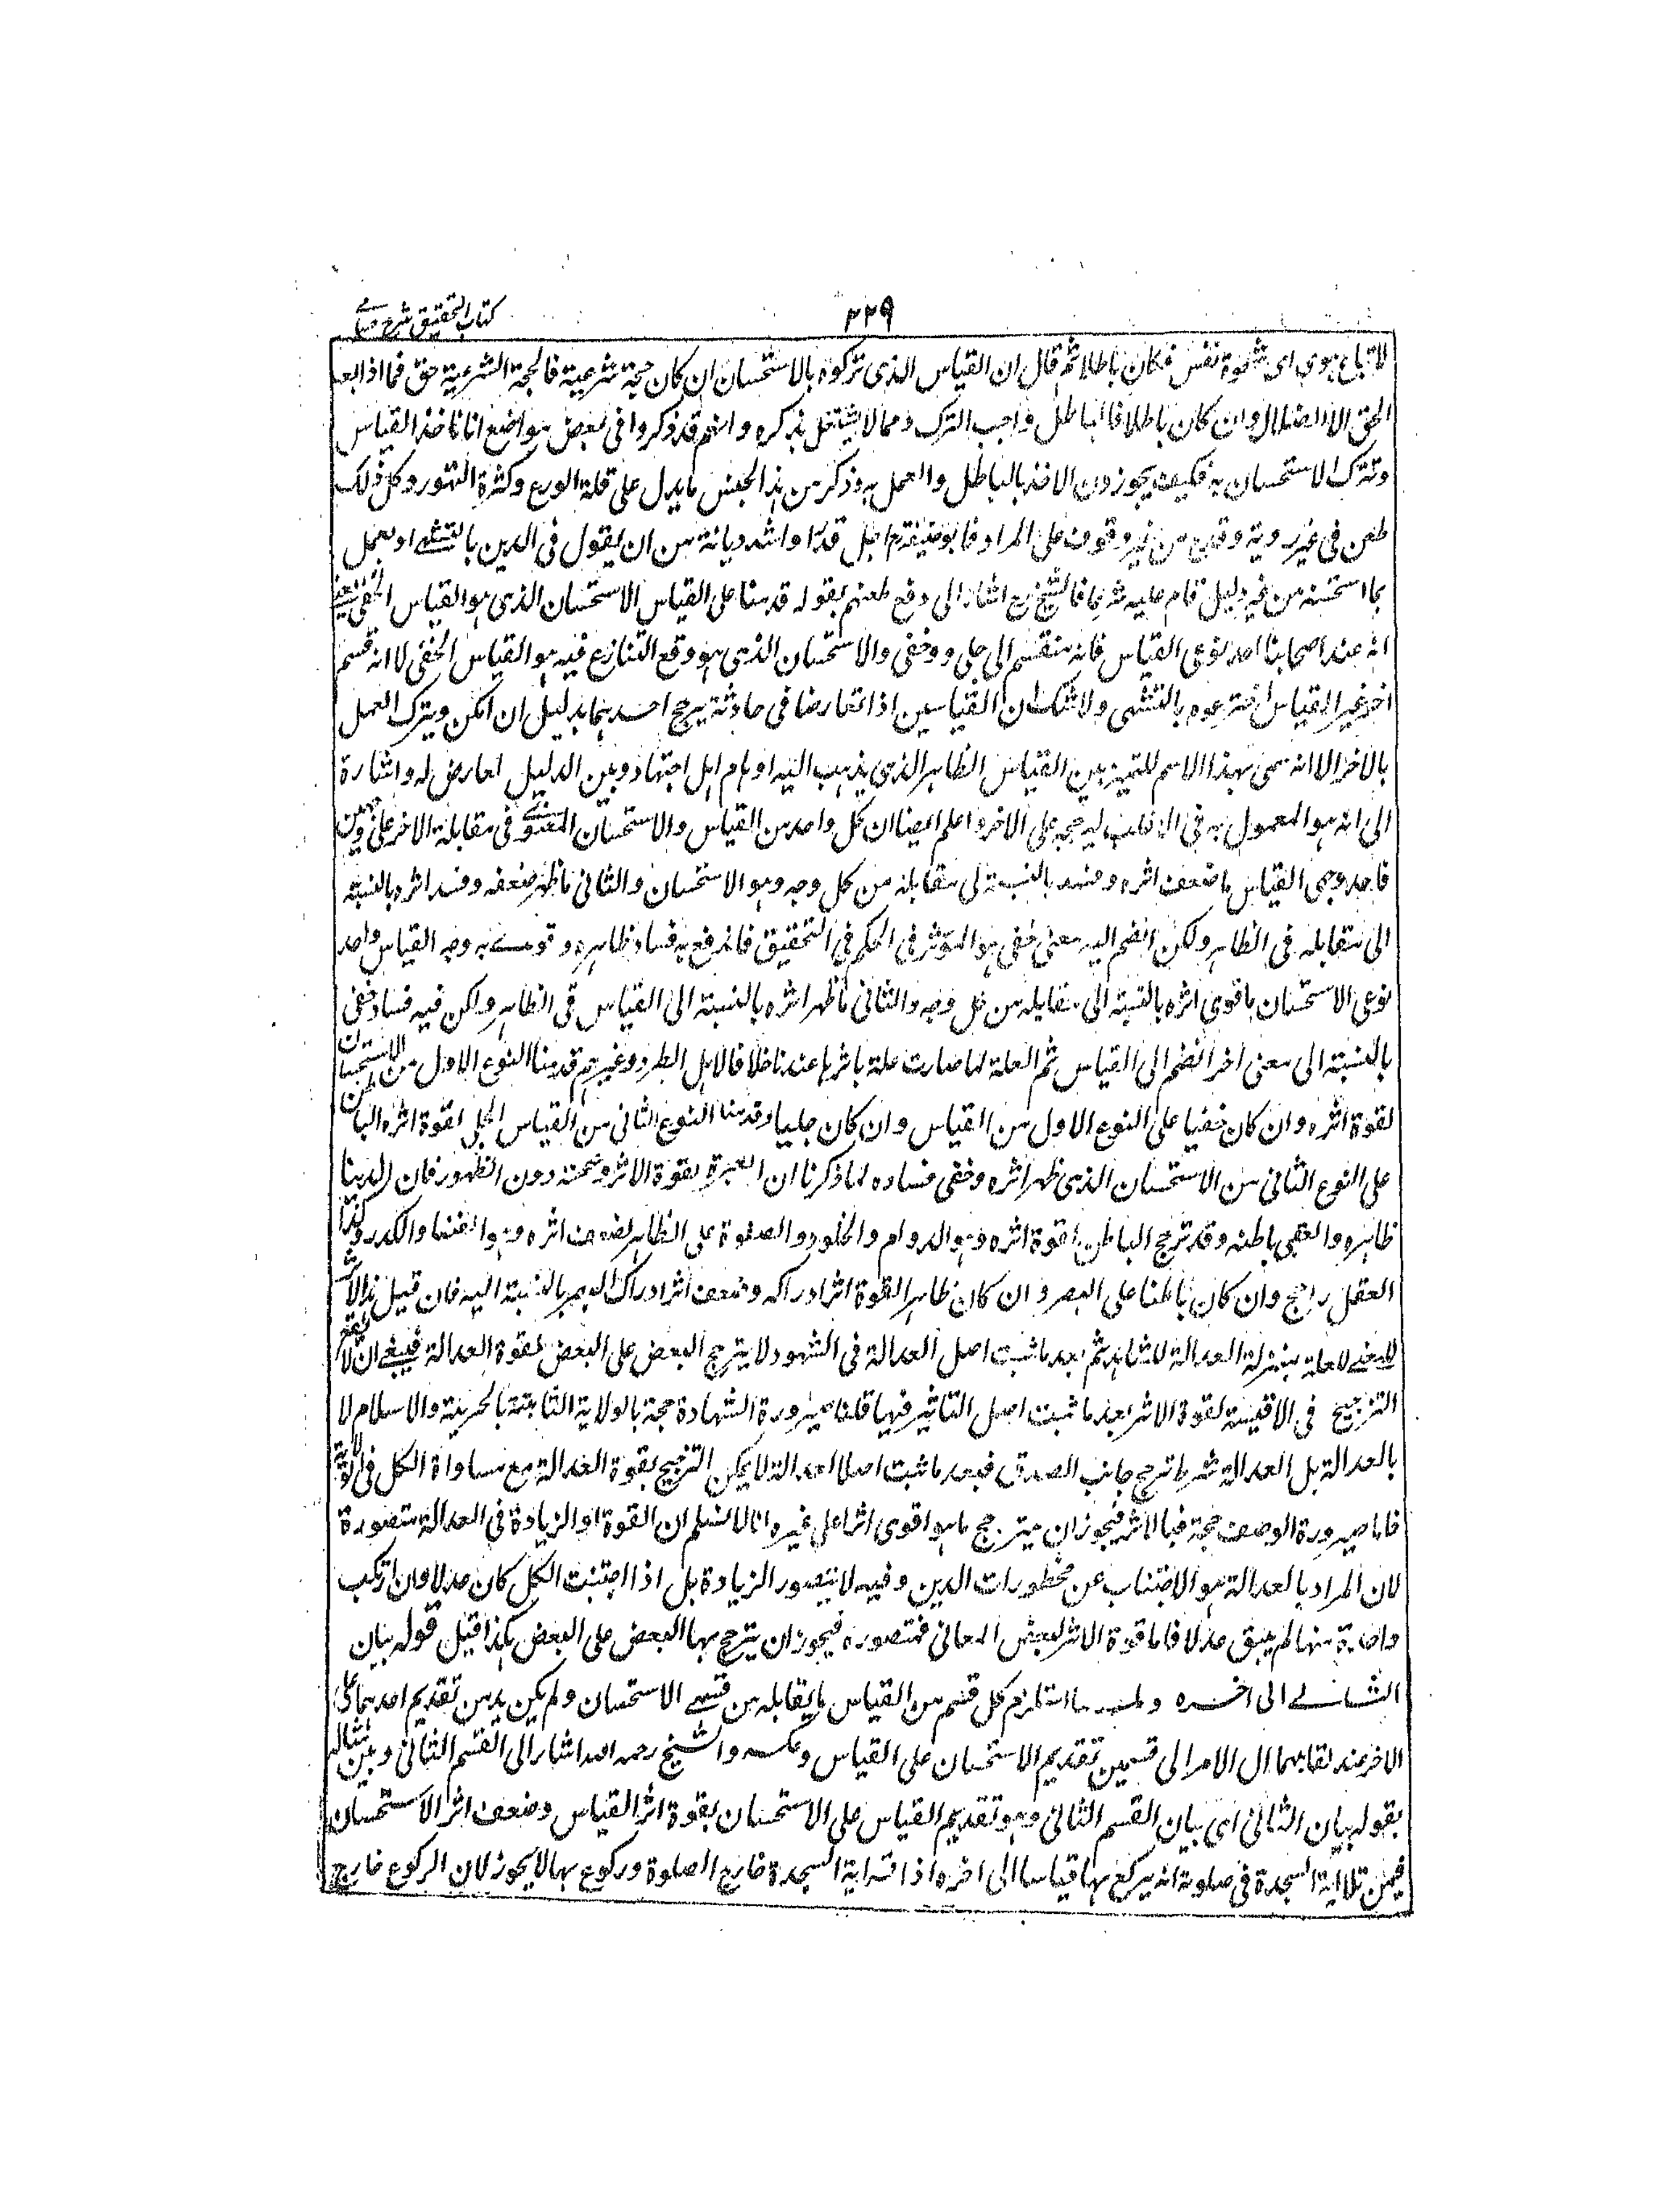 كتاب التحقيق شرح حسامي
٢٢٩
لاتباع هوى اى شهوة نفس فكان باطلا ثم قال ان القياس الذى تركوه بالاستحسان ان كان حجة شرعية فالحجة الشرعية حق فماذا بعد
الحق الا الضلال وان كان باطلا فالباطل واجب الترك ومما لا يشتغل بذكره وانهم قد ذكروا فى بعض مواضع انا ناخذ القياس
ونترك الاستحسان به فكيف يجوزون الاخذ بالباطل والعمل به وذكر من هذا الجنس ما يدل على قلة الورع وكثرة التهور وكل ذلك
طعن فى غير روية وقدح من غير وقوف على المراد فابو حنيفة رح اجل قدرا واشد ديانة من ان يقول فى الدين بالتشهى او يعمل
بما استحسنه من غير دليل قام عليه شرعا فالشيخ رح اشار الى دفع طعنهم بقوله قدمنا على القياس الاستحسان الذى هو القياس الخفى يعنى
انه عند اصحابنا احد نوعى القياس فانه منقسم الى جلى وخفى والاستحسان الذى هو وقع التنازع فيه هو القياس الخفى لا انه قسم
اخر غير القياس اخترعوه بالتشهى ولا شك ان القياسين اذا تعارضا فى حادثة يرجح احدهما بدليل ان امكن ويترك العمل
بالاخر الا انه سمى بهذا الاسم للتميز بين القياس الظاهر الذى يذهب اليه اوهام اهل اجتهاد وبين الدليل المعارض له واشارة
الى انه هو المعمول به فى الاغلب لترجحه على الاخر واعلم ايضا ان كل واحد من القياس والاستحسان المعنوى فى مقابلة الاخر على وجهين
فاحد وجهى القياس ما ضعف اثره وفسد بالنسبة الى مقابله من كل وجه وهو الاستحسان والثانى ما ظهر ضعفه وفسد اثره بالنسبة
الى مقابله فى الظاهر ولكن انضم اليه معنى خفى هو المؤثر فى الحكم فى التحقيق فاندفع به فساد ظاهره وقوى به وجه القياس واحد
نوعى الاستحسان ما قوى اثره بالنسبة الى مقابله من كل وجه والثانى ما ظهر اثره بالنسبة الى القياس فى الظاهر ولكن فيه فساد خفى
بالنسبة الى معنى اخر انضم الى القياس ثم العلة لما صارت علة باثرها عندنا خلافا لاهل الطرد وغيرهم قدمنا النوع الاول من الاستحسان
لقوة اثره وان كان خفيا على النوع الاول من القياس وان كان جليا وقدمنا النوع الثانى من القياس الجلى لقوة اثره الباطن
على النوع الثانى من الاستحسان الذى ظهر اثره وخفى فساده لما ذكرنا ان العبرة لقوة الاثر وصحته دون الظهور فان الدنيا
ظاهره والعقبى باطنه وقد ترجح الباطن لقوة اثره وهو الدوام والخلود والصفوة على الظاهر لضعف اثره وهو الفناء والكدر وكذا
العقل راجح وان كان باطنا على البصر وان كان ظاهر القوة اثر ادراكه وضعف اثر ادراك البصر بالنسبة اليه فان قيل هذا الاثر
للعلة بمنزلة العدالة للشاهد ثم بعد ما ثبت اصل العدالة فى الشهود لا يترجح البعض على البعض لقوة العدالة فينبغى ان لا يقع
الترجيح فى الاقيسة لقوة الاثر بعد ما ثبت اصل التاثير فيها قلنا صيرورة الشهادة حجة بالولاية الثابتة بالحرية والاسلام لا
بالعدالة بل العدالة شرط ترجح جانب الصدق فبعد ما ثبت اصل العدالة لا يمكن الترجيح بقوة العدالة مع مساواة الكل فى الولاية
فاما صيرورة الوصف حجة فبالاثر فيجوز ان يترجح ما هو اقوى اثرا على غيره انا لا نسلم ان القوة او الزيادة فى العدالة متصورة
لان المراد بالعدالة هو الاجتناب عن محظورات الدين وفيه لا يتصور الزيادة بل اذا اجتنب الكل كان عدلا وان ارتكب
واحدة منها لم يبق عدلا فاما قوة الاثر لبعض المعانى فمتصوره فيجوز ان يترجح بها البعض على البعض هكذا قيل قوله بيان
الثانى الى اخره ولما استلزم كل قسم من القياس ما يقابله من قسمى الاستحسان ولم يكن بد من تقديم احدهما على
الاخر عند تقابهما ال الامر الى قسمين تقديم الاستحسان على القياس وعكسه والشيخ رحمه الله اشار الى القسم الثانى وبين مثاله
بقوله بيان الثانى اى بيان القسم الثانى وهو تقديم القياس على الاستحسان بقوة اثر القياس وضعف اثر الاستحسان
فيمن تلا اية السجدة فى صلوته انه يركع بها قياسا الى اخره اذا قرا اية السجدة خارج الصلوة وركوع بها لا يجوز لان الركوع خارج